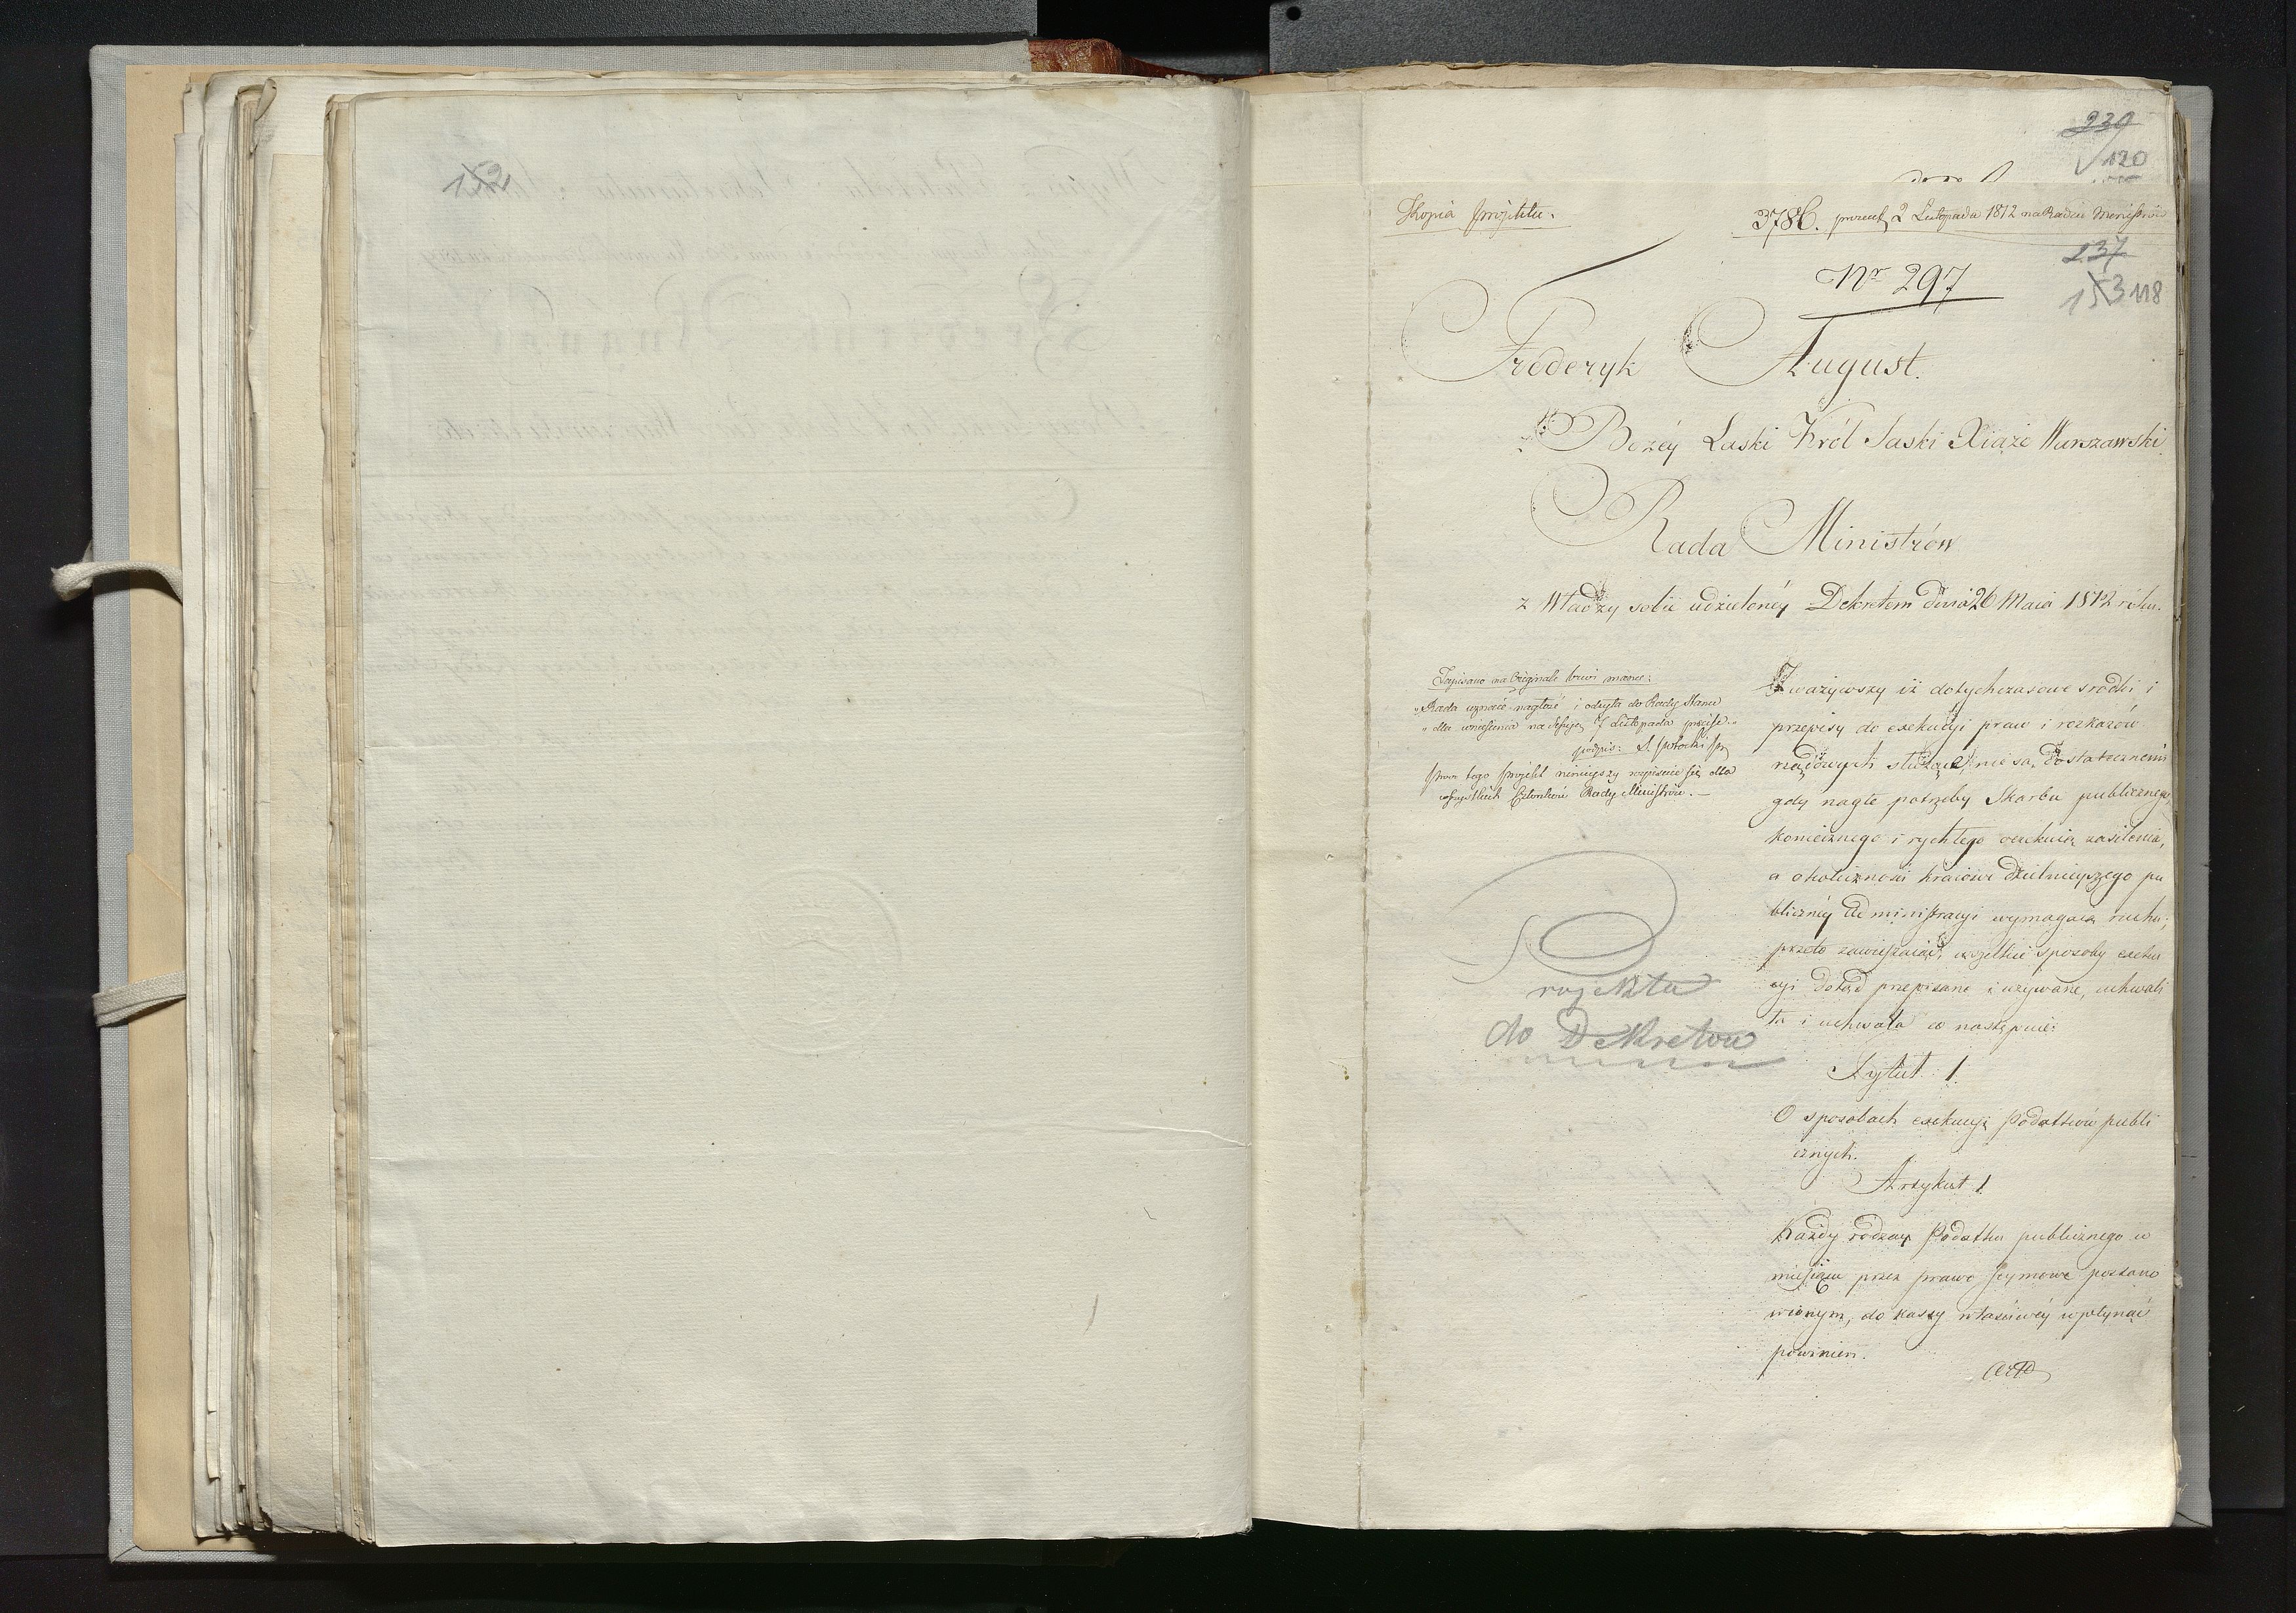 152
239
120
Kopia projektu.
3786. prezent. 2 Listopada 1812 na Radzie Ministrów
237
Nr 297
153 118
Fryderyk August.
z Bożéy Łaski Król Saski Xiąże Warszawski.
Rada Ministrów
z Władzy sobie udzielonéy Dekretem dnia 26 Maia 1812 roku.
Zapisano na Originale brevi manu:
"Rada uznaie nagłość i odsyła do Rady Stanu
"dla wniesienia na Sessyą 7 Listopada
podpis: S. Potocki
tego projekt ninieyszy rozpisuie się dla
wszystkich Członków Rady Ministrów.—
Zważywszy iż dotychczasowe srodki i
przepisy do exekucyi praw i rozkazów
rządowych służące, nie są dostatecznemi
gdy nagłe potrzeby Skarbu publicznego,
koniecznego i rychłego oczekuią zasilenia,
a okoliczności kraiowe dzielnieyszego pu
bliczney Administracyi wymagaią ruchu;
przeto zawieszaiąc, wszelkie sposoby exeku
cyi dotąd przepisane i używane, uchwali
ła i uchwala co następuie:
Projekta
do Dekretow
Tytuł 1.
O sposobach exekucyi Podatków publi
cznych.
Artykuł 1
Każdy rodzay Podatku publicznego w
miesiącu przez prawo seymowe postano
wionym, do kassy właściwéy wpłynąć
powinien.